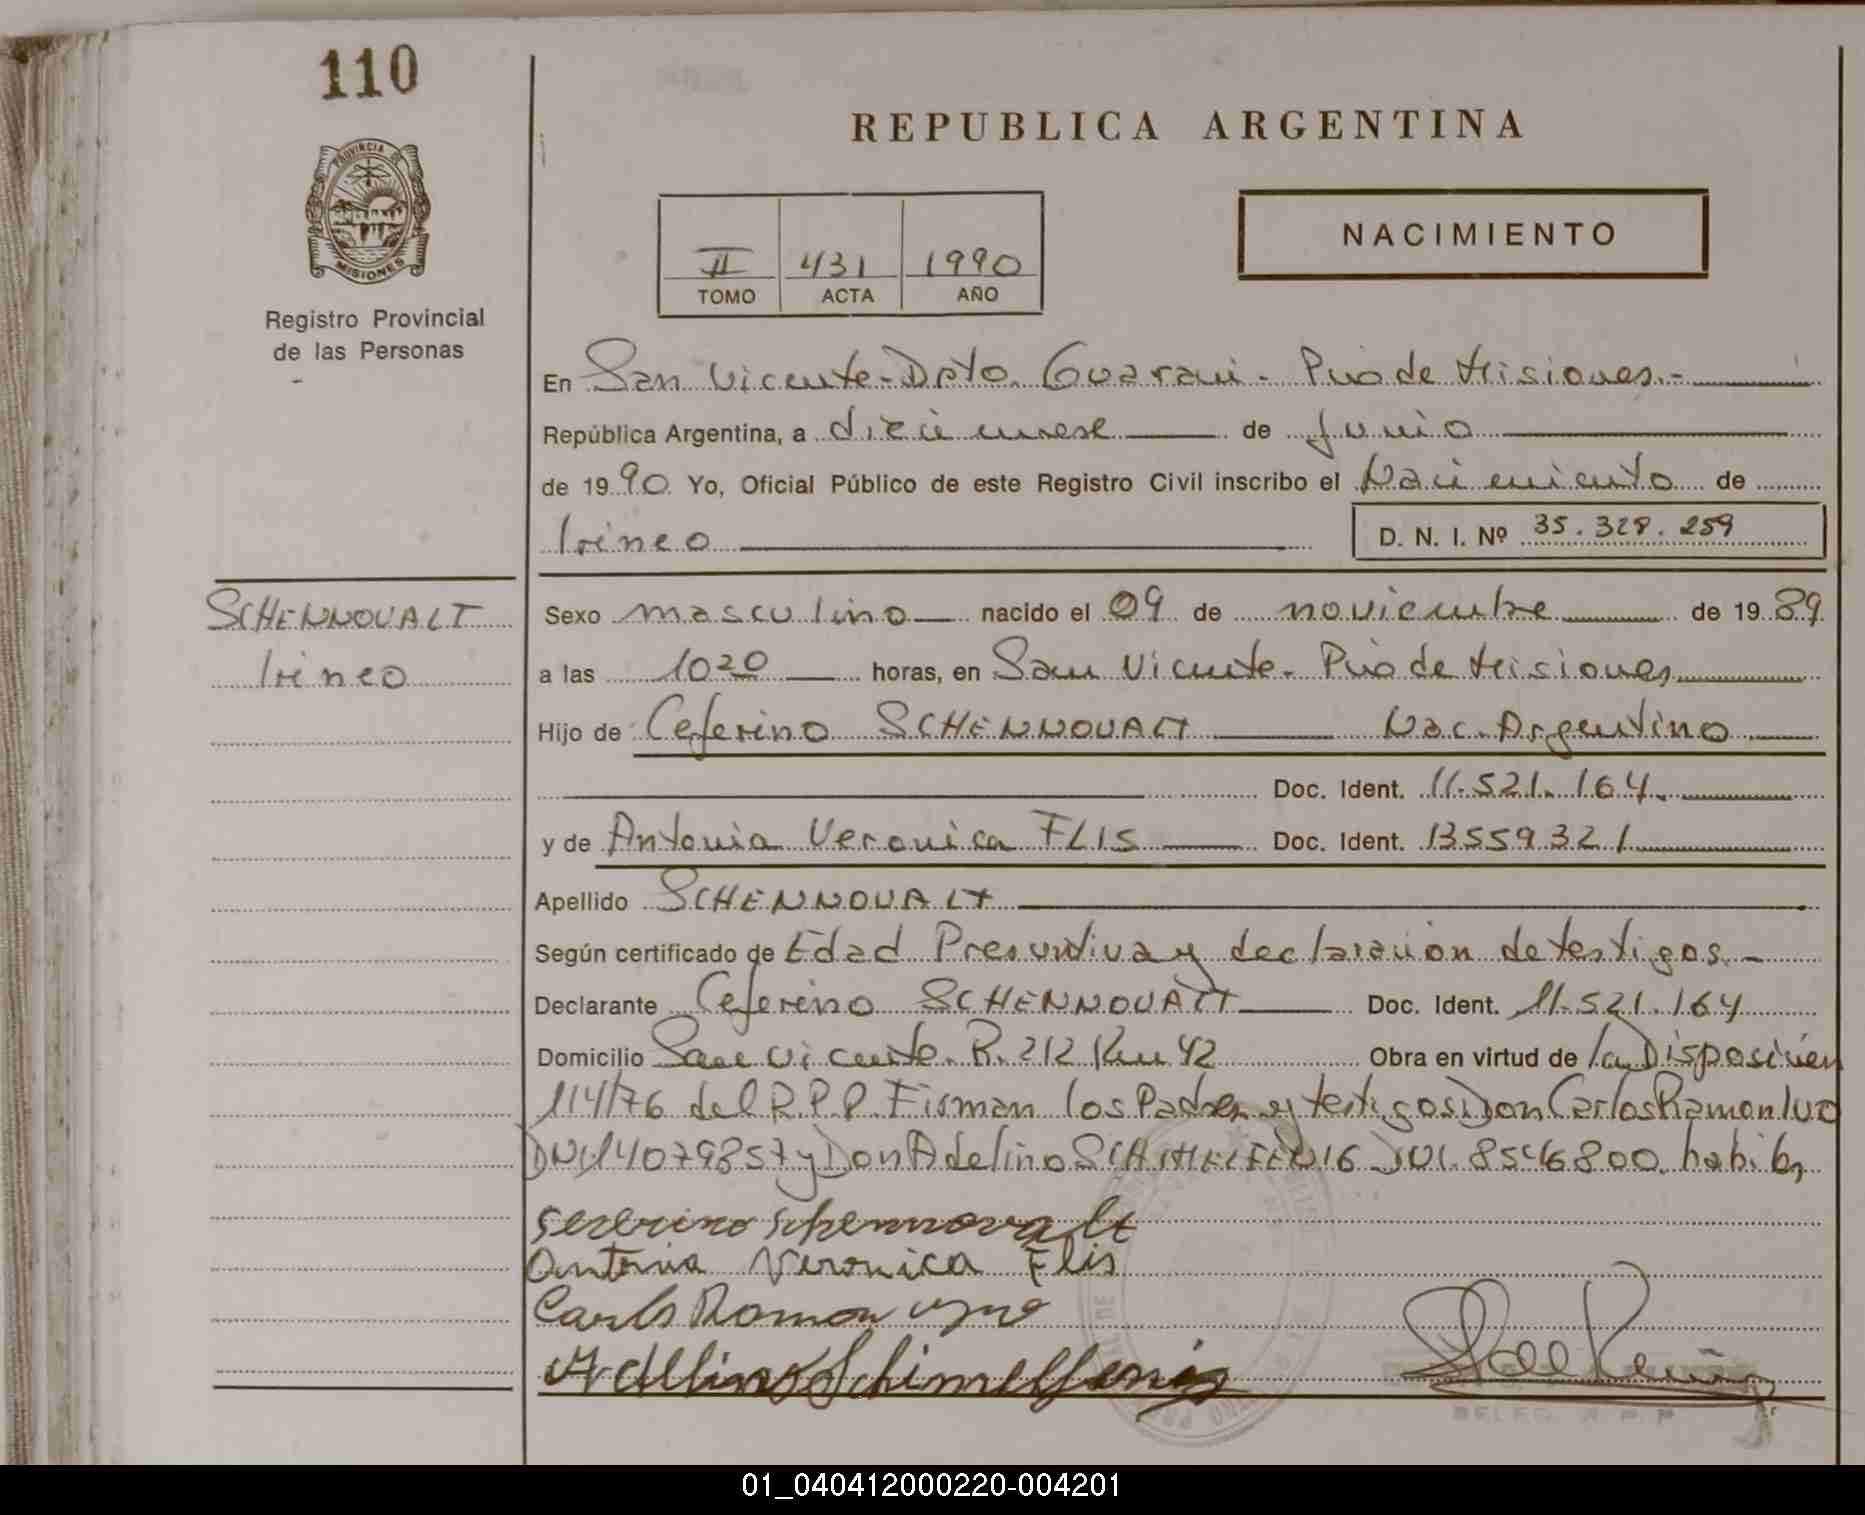 110
REPUBLICA ARGENTINA
PROVINCIA DE
MISIONES
Registro Provincial
de las Personas
II 431 1990
TOMO ACTA AÑO
NACIMIENTO
En San Vicente-Dpto. Guarani- Pcia de Misiones.-
República Argentina, a diecinueve de Junio
de 1990. Yo, Oficial Público de este Registro Civil inscribo el Nacimiento de
Irineo D. N. I. Nº 35.328.259
SCHENNOVALT
Irineo
Sexo masculino nacido el 09 de noviembre de 1989
a las 1020 horas, en San Vicente- Pcia de Misiones
Hijo de Ceferino SCHENNOVALT Nac. Argentino
Doc. Ident. 11.521.164.
y de Antonia Veronica FLIS Doc. Ident. 13559321
Apellido SCHENNOVALT
Según certificado de Edad Presuntiva y declaración de testigos.-
Declarante Ceferino SCHENNOVALT Doc. Ident. 11.521.164
Domicilio San Vicente. R. 212 Km 42 Obra en virtud de la Disposición
114/76 del R.P.P. Firman los Padres y testigos Don Carlos Ramon
DNI 14079857 y Don Adelino DNI. 8546800. habil
Severino Schennovalt
Antonia Veronica Flis
Carlos Ramon
DELEG. R.P.P.
01_040412000220-004201